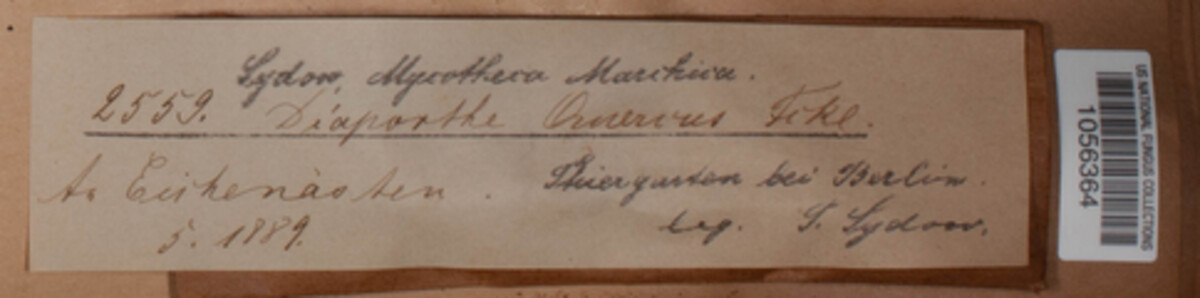 Sydow, Mycotheca Marchica.
2559. Diaporthe Quercus Fckl.
An Eichenästen. Thiergarten bei Berlin.
5. 1889. leg. P. Sydow.
US NATIONAL FUNGUS COLLECTIONS
1056364